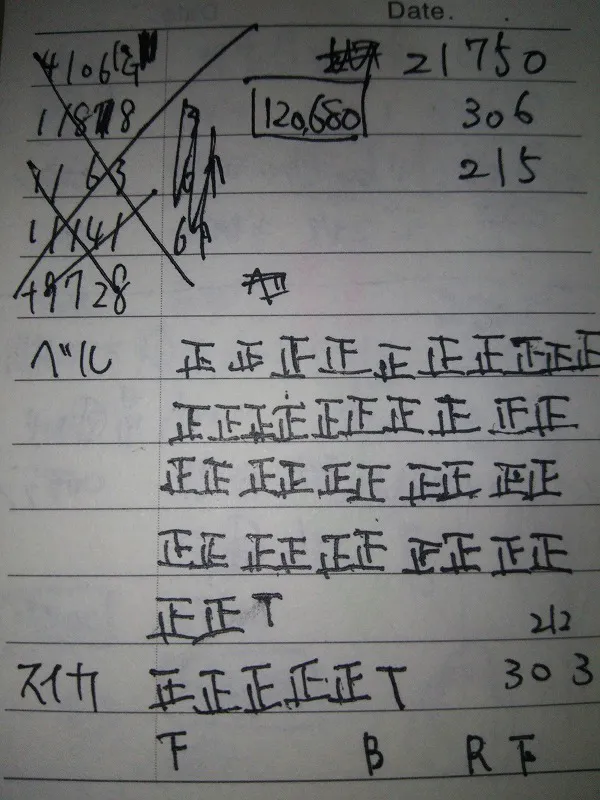 Date.
21750
11878 120,680 306
215
ベル 正正正正正正正正正正
正正正正正正正正正正
正正正正正正正正正正
正正正正正正正正正正
正正T 212
スイカ 正正正正正T 303
F B R F